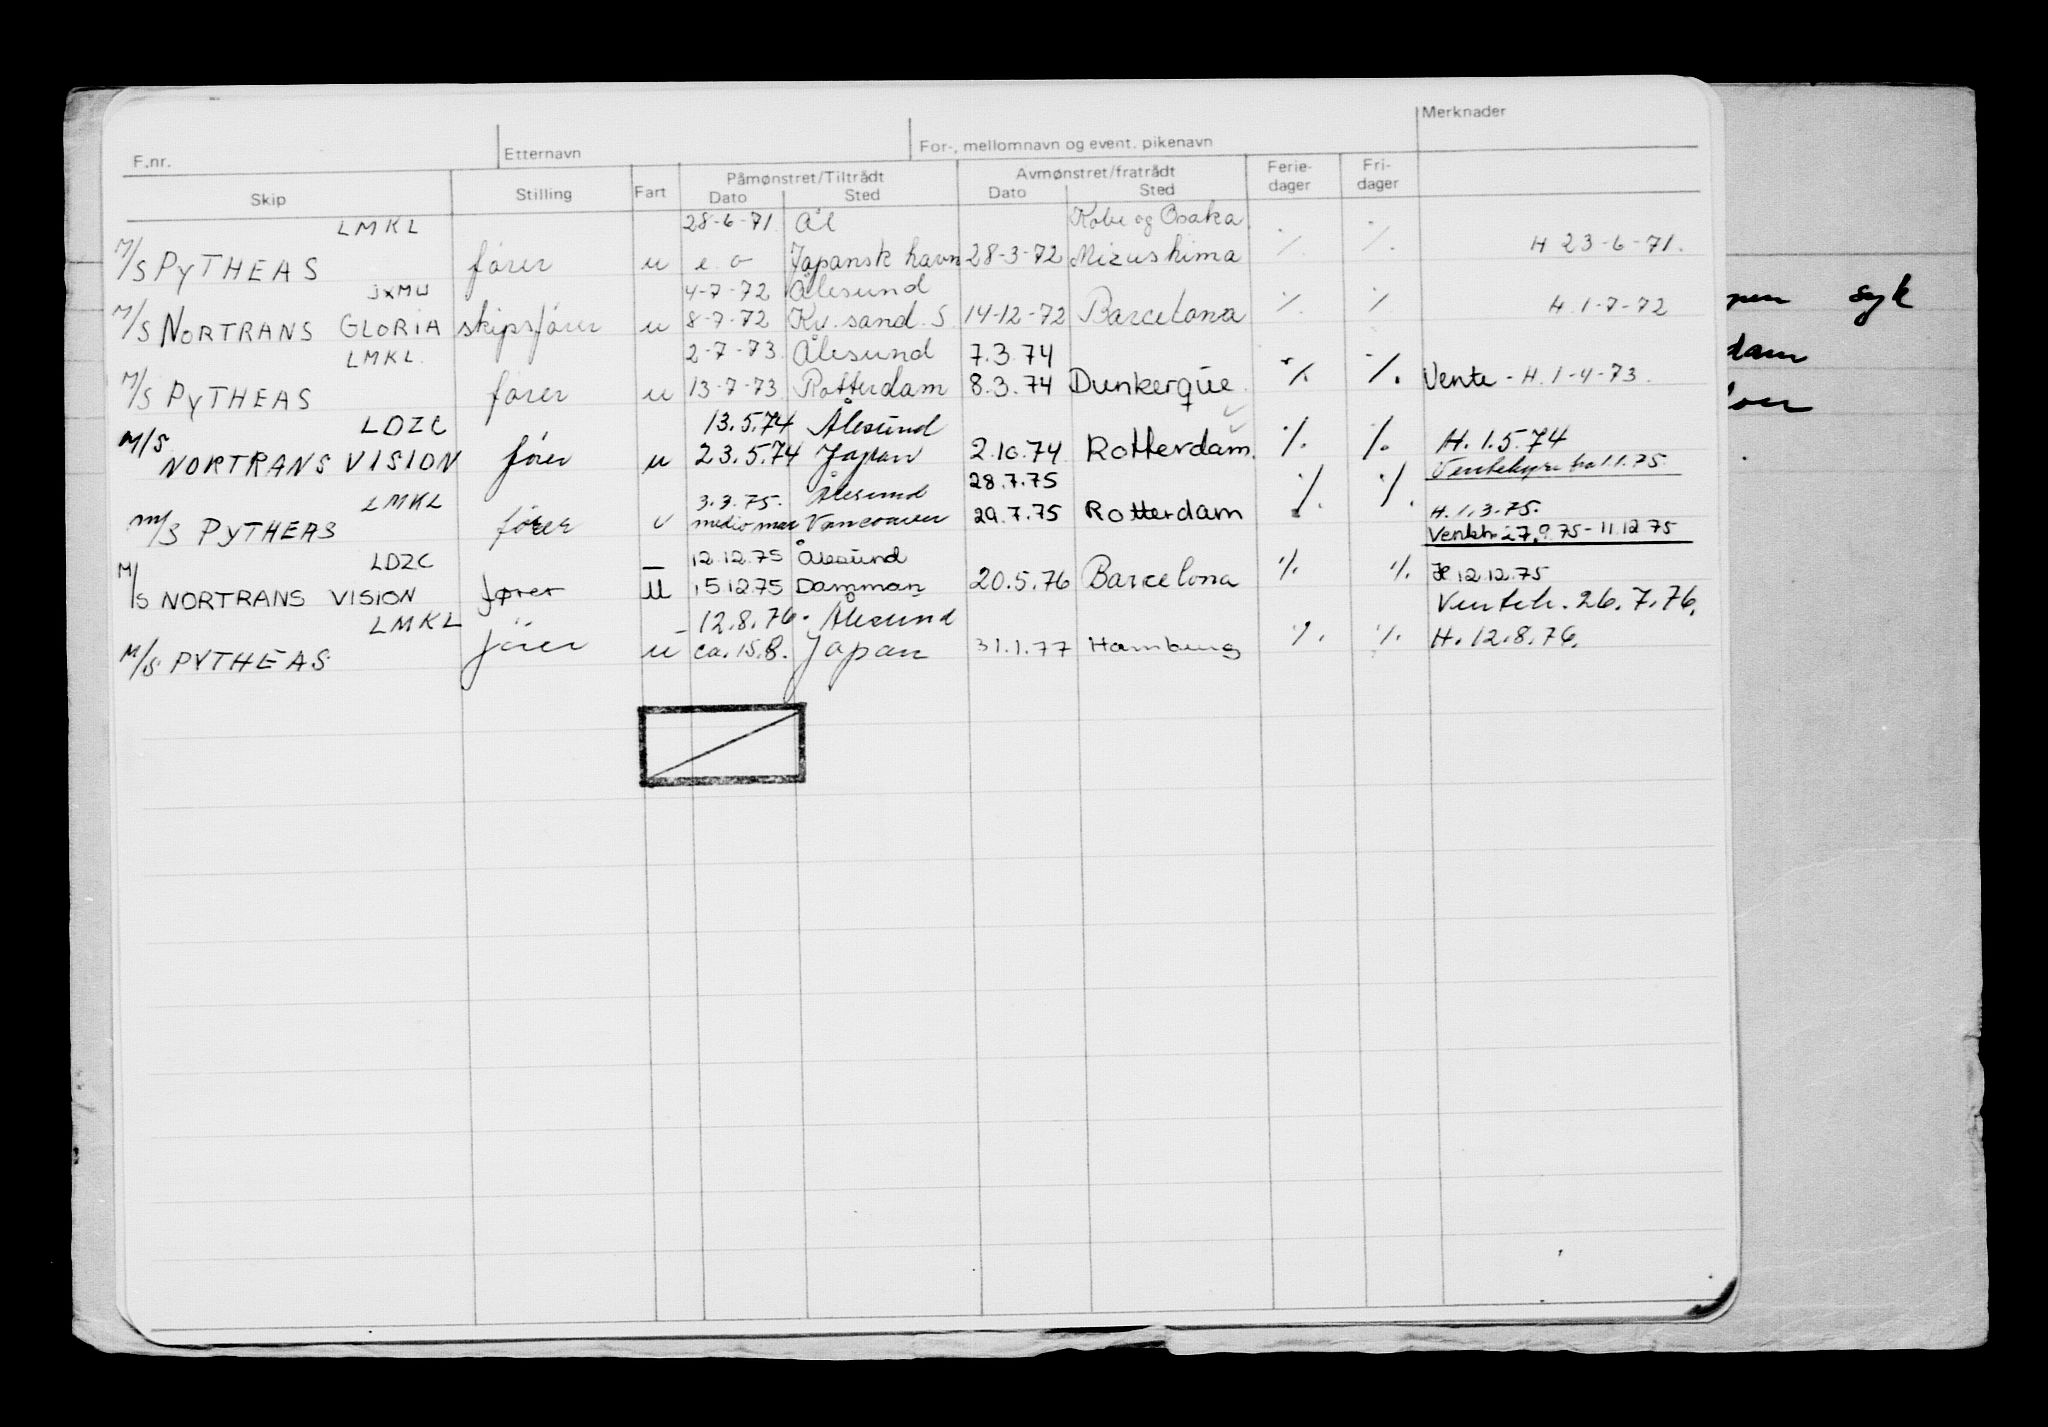 Merknader
F.nr. Etternavn For-, mellomnavn og event. pikenavn
Skip Stilling Fart Påmønstret/Tiltrådt Avmønstret/fratrådt Ferie-dager Fri-dager
Dato Sted Dato Sted
LMKL 28-6-71 Ål Kobe og Osaka ./. ./.
M/S PYTHEAS fører u e. o Japansk havn 28-3-72 Mizushima ./. ./. H 23-6-71.
JXMU 4-7-72 Ålesund
M/S NORTRANS GLORIA skipsfører u 8-7-72 Kr. sand. S 14-12-72 Barcelona ./. ./. H. 1-7-72
LMKL. 2-7-73. Ålesund 7.3.74
M/S PYTHEAS fører u 13-7-73 Rotterdam 8.3.74 Dunkerque. ./. ./. Vente - H. 1-4-73.
LDZC 13.5.74 Ålesund
M/S NORTRANS VISION fører u 23.5.74 Japan 2.10.74 Rotterdam. ./. ./. H. 1.5.74
Ventehyre fra 1.1.75.
LMKL 3.3.75. Ålesund 28.7.75
m/s PYTHEAS fører u medio mar Vancouver 29.7.75 Rotterdam ./. ./. H. 1.3.75.
Venteh. 27.9.75 - 11.12.75
LDZC 12.12.75 Ålesund
M/S NORTRANS VISION fører u 15.12.75 Damman 20.5.76 Barcelona ./. ./. H 12.12.75
Venteh. 26.7.76.
LMKL 12.8.76. Ålesund
M/S PYTHEAS fører u ca. 15.8. Japan 31.1.77 Hamburg ./. ./. H. 12.8.76.
syk
dam